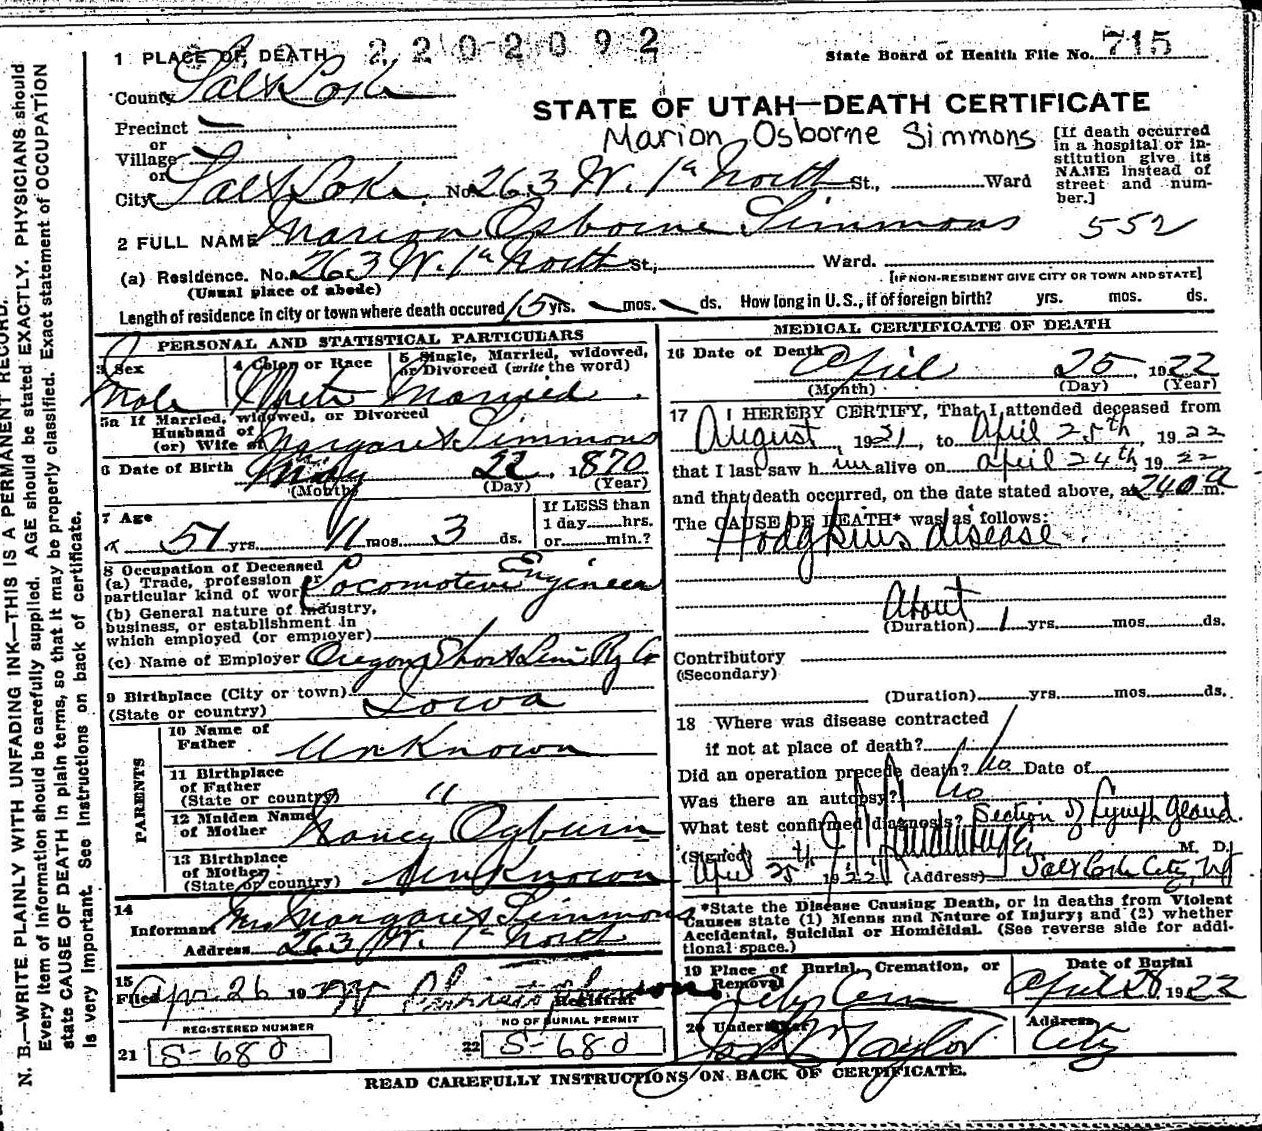 1 PLACE OF DEATH 2202092
State Board of Health File No. 715
County Salt Lake
STATE OF UTAH—DEATH CERTIFICATE
Precinct
or
Village
or
Marion Osborne Simmons
[If death occurred in a hospital or institution give its NAME instead of street and number.]
City Salt Lake, No. 263 W. 1st North St., Ward
2 FULL NAME Marion Osborne Simmons
552
(a) Residence. No. 263 W. 1st North St., Ward.
(Usual place of abode)
[IF NON-RESIDENT GIVE CITY OR TOWN AND STATE]
Length of residence in city or town where death occured 15 yrs. — mos. — ds. How long in U. S., if of foreign birth? yrs. mos. ds.
PERSONAL AND STATISTICAL PARTICULARS
3 Sex
Male
4 Color or Race
White
5 Single, Married, widowed, or Divorced (write the word)
Married
5a If Married, widowed, or Divorced
Husband of
(or) Wife of Margaret Simmons
6 Date of Birth May 22, 1870
(Month) (Day) (Year)
7 Age
51 yrs. 11 mos. 3 ds.
If LESS than
1 day hrs.
or min.?
8 Occupation of Deceased
(a) Trade, profession or
particular kind of work Locomotive Engineer
(b) General nature of industry,
business, or establishment in
which employed (or employer)
(c) Name of Employer Oregon Short Line Ry Co
9 Birthplace (City or town)
(State or country) Iowa
PARENTS
10 Name of
Father Unknown
11 Birthplace
of Father
(State or country) "
12 Maiden Name
of Mother Nancy Ogburn
13 Birthplace
of Mother
(State or country) Unknown
14
Informant Mrs Margaret Simmons
Address 263 W. 1st North
15
Filed Apr 26 1922
Registrar
REGISTERED NUMBER
21 S-680
NO OF BURIAL PERMIT
22 S-680
MEDICAL CERTIFICATE OF DEATH
16 Date of Death
April 25, 1922
(Month) (Day) (Year)
17 I HEREBY CERTIFY, That I attended deceased from
August, 1921, to April 25th, 1922
that I last saw him alive on april 24th, 1922
and that death occurred, on the date stated above, at 240 a m.
The CAUSE OF DEATH* was as follows:
Hodgkins disease.
About
(Duration) 1 yrs. mos. ds.
Contributory
(Secondary)
(Duration) yrs. mos. ds.
18 Where was disease contracted
if not at place of death?
Did an operation precede death? No Date of
Was there an autopsy? No
What test confirmed diagnosis? Section of Lymph gland.
(Signed) M. D.
April 25th 1922 (Address) Salt Lake City, Ut
*State the Disease Causing Death, or in deaths from Violent Causes state (1) Menns and Nature of Injury; and (2) whether Accidental, Suicidal or Homicidal. (See reverse side for additional space.)
19 Place of Burial, Cremation, or
Removal City Cem
Date of Burial
April 28 1922
20 Undertaker
Taylor
Address
City
READ CAREFULLY INSTRUCTIONS ON BACK OF CERTIFICATE.
N. B.—WRITE PLAINLY WITH UNFADING INK—THIS IS A PERMANENT RECORD.
Every item of information should be carefully supplied. AGE should be stated EXACTLY. PHYSICIANS should
state CAUSE OF DEATH in plain terms, so that it may be properly classified. Exact statement of OCCUPATION
is very important. See Instructions on back of certificate.